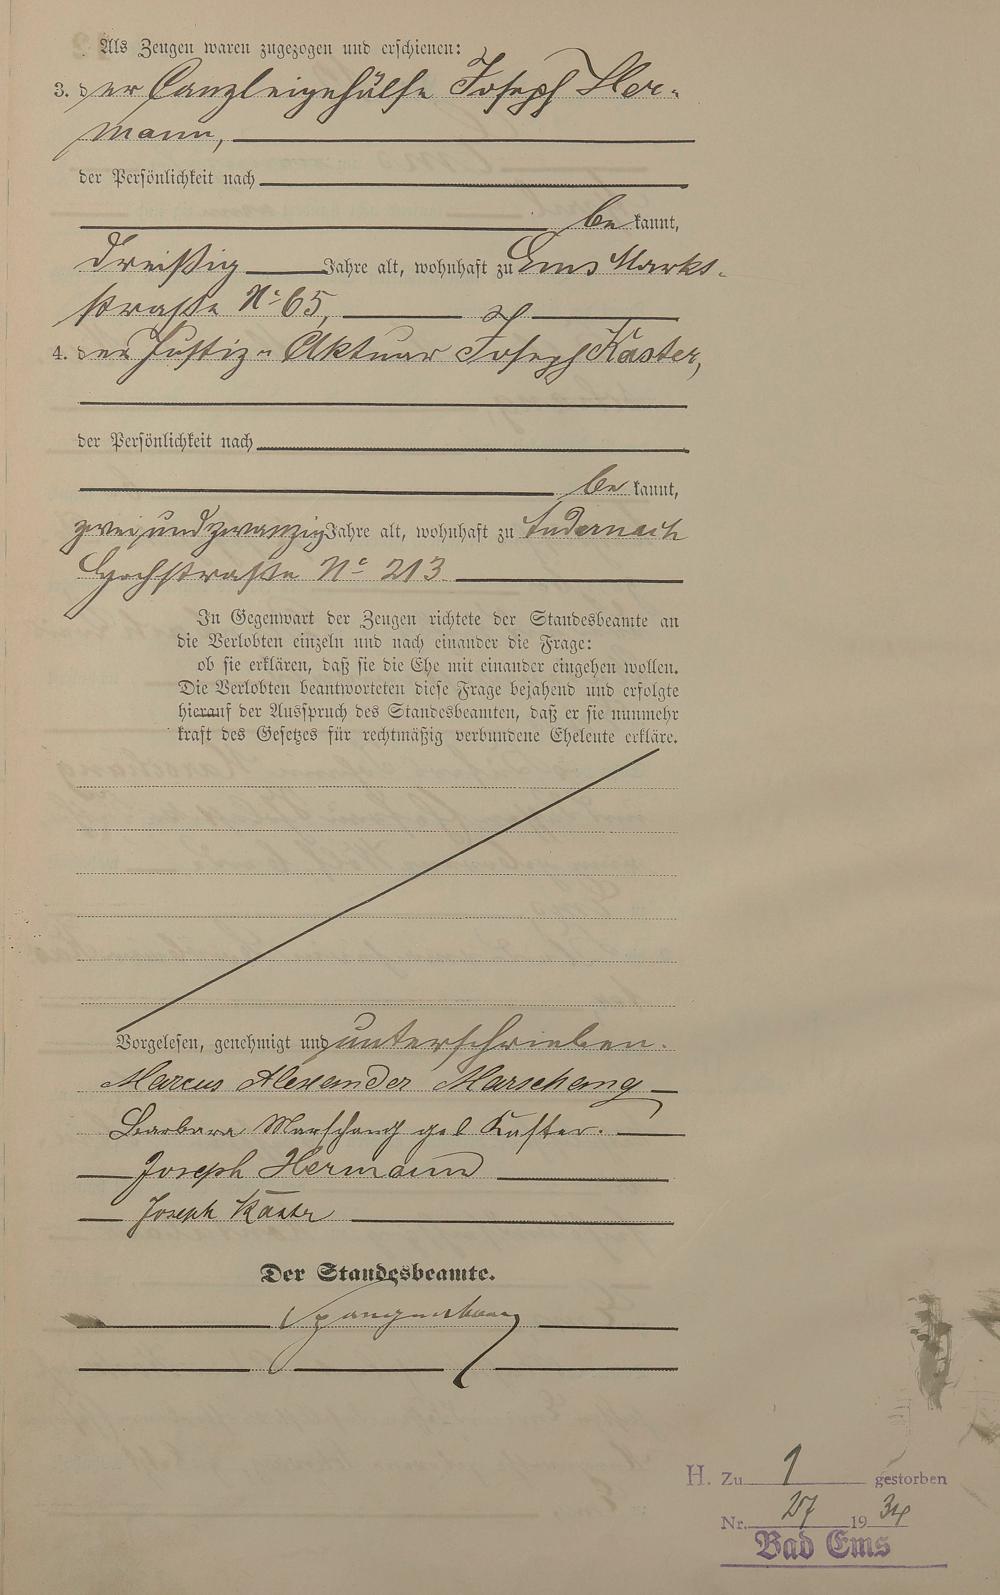 Als Zeugen waren zugezogen und erschienen:
3. der Canzleigehülfe Joseph Her-
mann,
der Persönlichkeit nach
be kannt,
dreißig Jahre alt, wohnhaft zu Ems Markt-
straße No 65,
4. der Justiz-Aktuar Joseph Kaster,
der Persönlichkeit nach
be kannt,
zweiundzwanzig Jahre alt, wohnhaft zu Andernach
Hochstraße No 213
In Gegenwart der Zeugen richtete der Standesbeamte an
die Verlobten einzeln und nach einander die Frage:
ob sie erklären, daß sie die Ehe mit einander eingehen wollen.
Die Verlobten beantworteten diese Frage bejahend und erfolgte
hierauf der Ausspruch des Standesbeamten, daß er sie nunmehr
kraft des Gesetzes für rechtmäßig verbundene Eheleute erkläre.
Vorgelesen, genehmigt und unterschrieben.
Marcus Alexander Marschang
Barbara Marschang geb Kaster.
Joseph Hermann
Joseph Kaster
Der Standesbeamte.
Spangenberg
H. Zu 1 gestorben
Nr. 27 19 34
Bad Ems